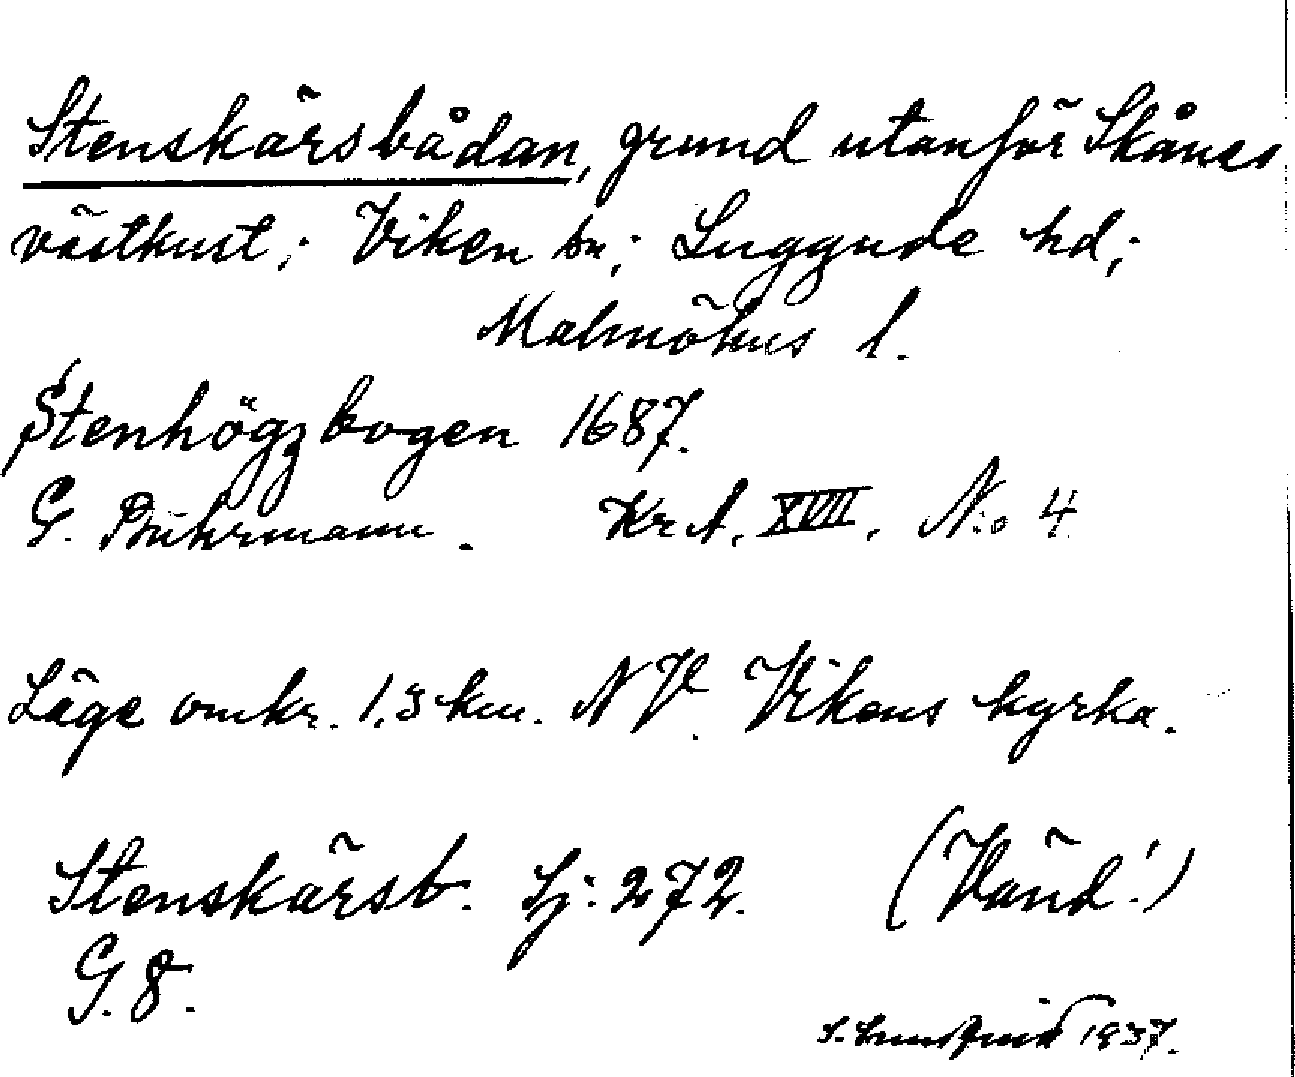 Stenskärsbådan, grund utanför Skånes
västkust; Viken sn; Luggude hd;
Malmöhus l.
Stenhögzbogen 1687.
G. Buhrmann. KrA. XVII. N:o 4
Läge omkr. 1,3 km. NV. Vikens kyrka.
Stenskärsb. Sj: 272. (Vänd!)
G. 8.
S. 1937.